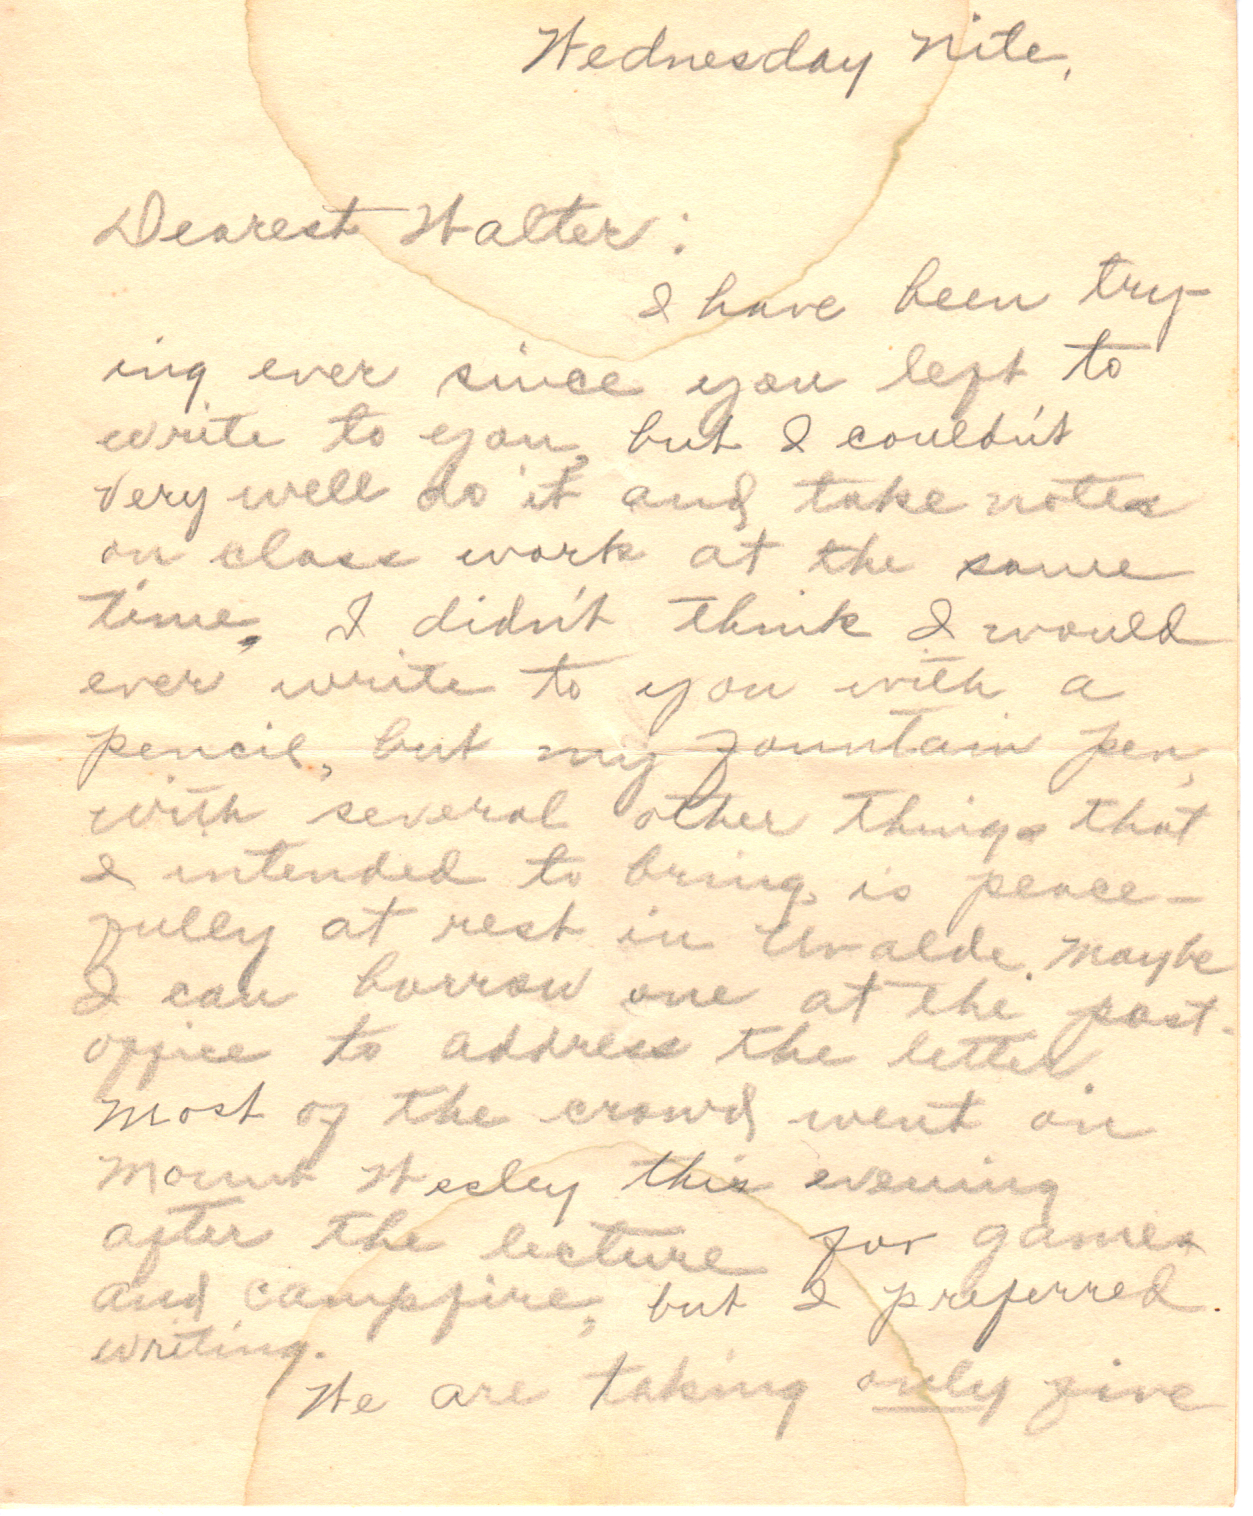 Wednesday Nite,
Dearest Walter:
I have been try-
ing ever since you left to
write to you, but I couldn't
very well do it and take notes
on class work at the same
time. I didn't think I would
ever write to you with a
pencil, but my fountain pen,
with several other things that
I intended to bring, is peace-
fully at rest in Uvalde. Maybe
I can borrow one at the post-
office to address the letter.
Most of the crowd went on
Mount Wesley this evening
after the lecture for games
and campfire, but I preferred
writing.
We are taking only five